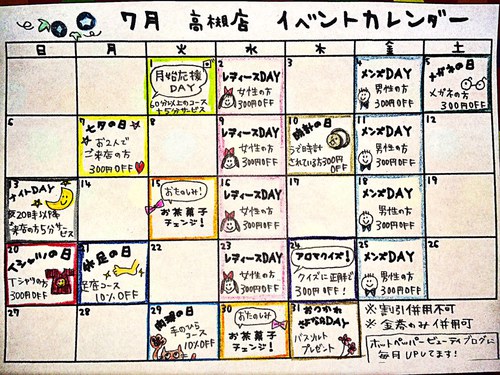 7月 高槻店 イベントカレンダー
日 月 火 水 木 金 土
1
月始応援
DAY
60分以上のコース
+5分サービス
2
レディースDAY
女性の方
300円OFF
3
4
メンズDAY
男性の方
300円OFF
5
メガネの日
メガネの方
300円OFF
6
7
七夕の日
お2人で
ご来店の方
300円OFF
8
9
レディースDAY
女性の方
300円OFF
10
時計の日
うで時計
されている方300円
OFF
11
メンズDAY
男性の方
300円OFF
12
13
ナイトDAY
夜20時以降
ご来店の方5分サービス
14
15
おたのしみ!
お茶菓子
チェンジ!
16
レディースDAY
女性の方
300円OFF
17
18
メンズDAY
男性の方
300円OFF
19
20
Tシャツの日
Tシャツの方
300円OFF
21
足の日
足店コース
10%OFF
22
23
レディースDAY
女性の方
300円OFF
24
アロマクイズ!
クイズに正解で
300円OFF!
25
メンズDAY
男性の方
300円OFF
26
27
28
29
の日
手のひら
コース
10%OFF
30
おたのしみ
お茶菓子
チェンジ!
31
おつかれ
さまDAY
バスソルト
プレゼント
※割引併用不可
※金券のみ併用可
ホットペッパービューティブログに
毎月UPしてます!